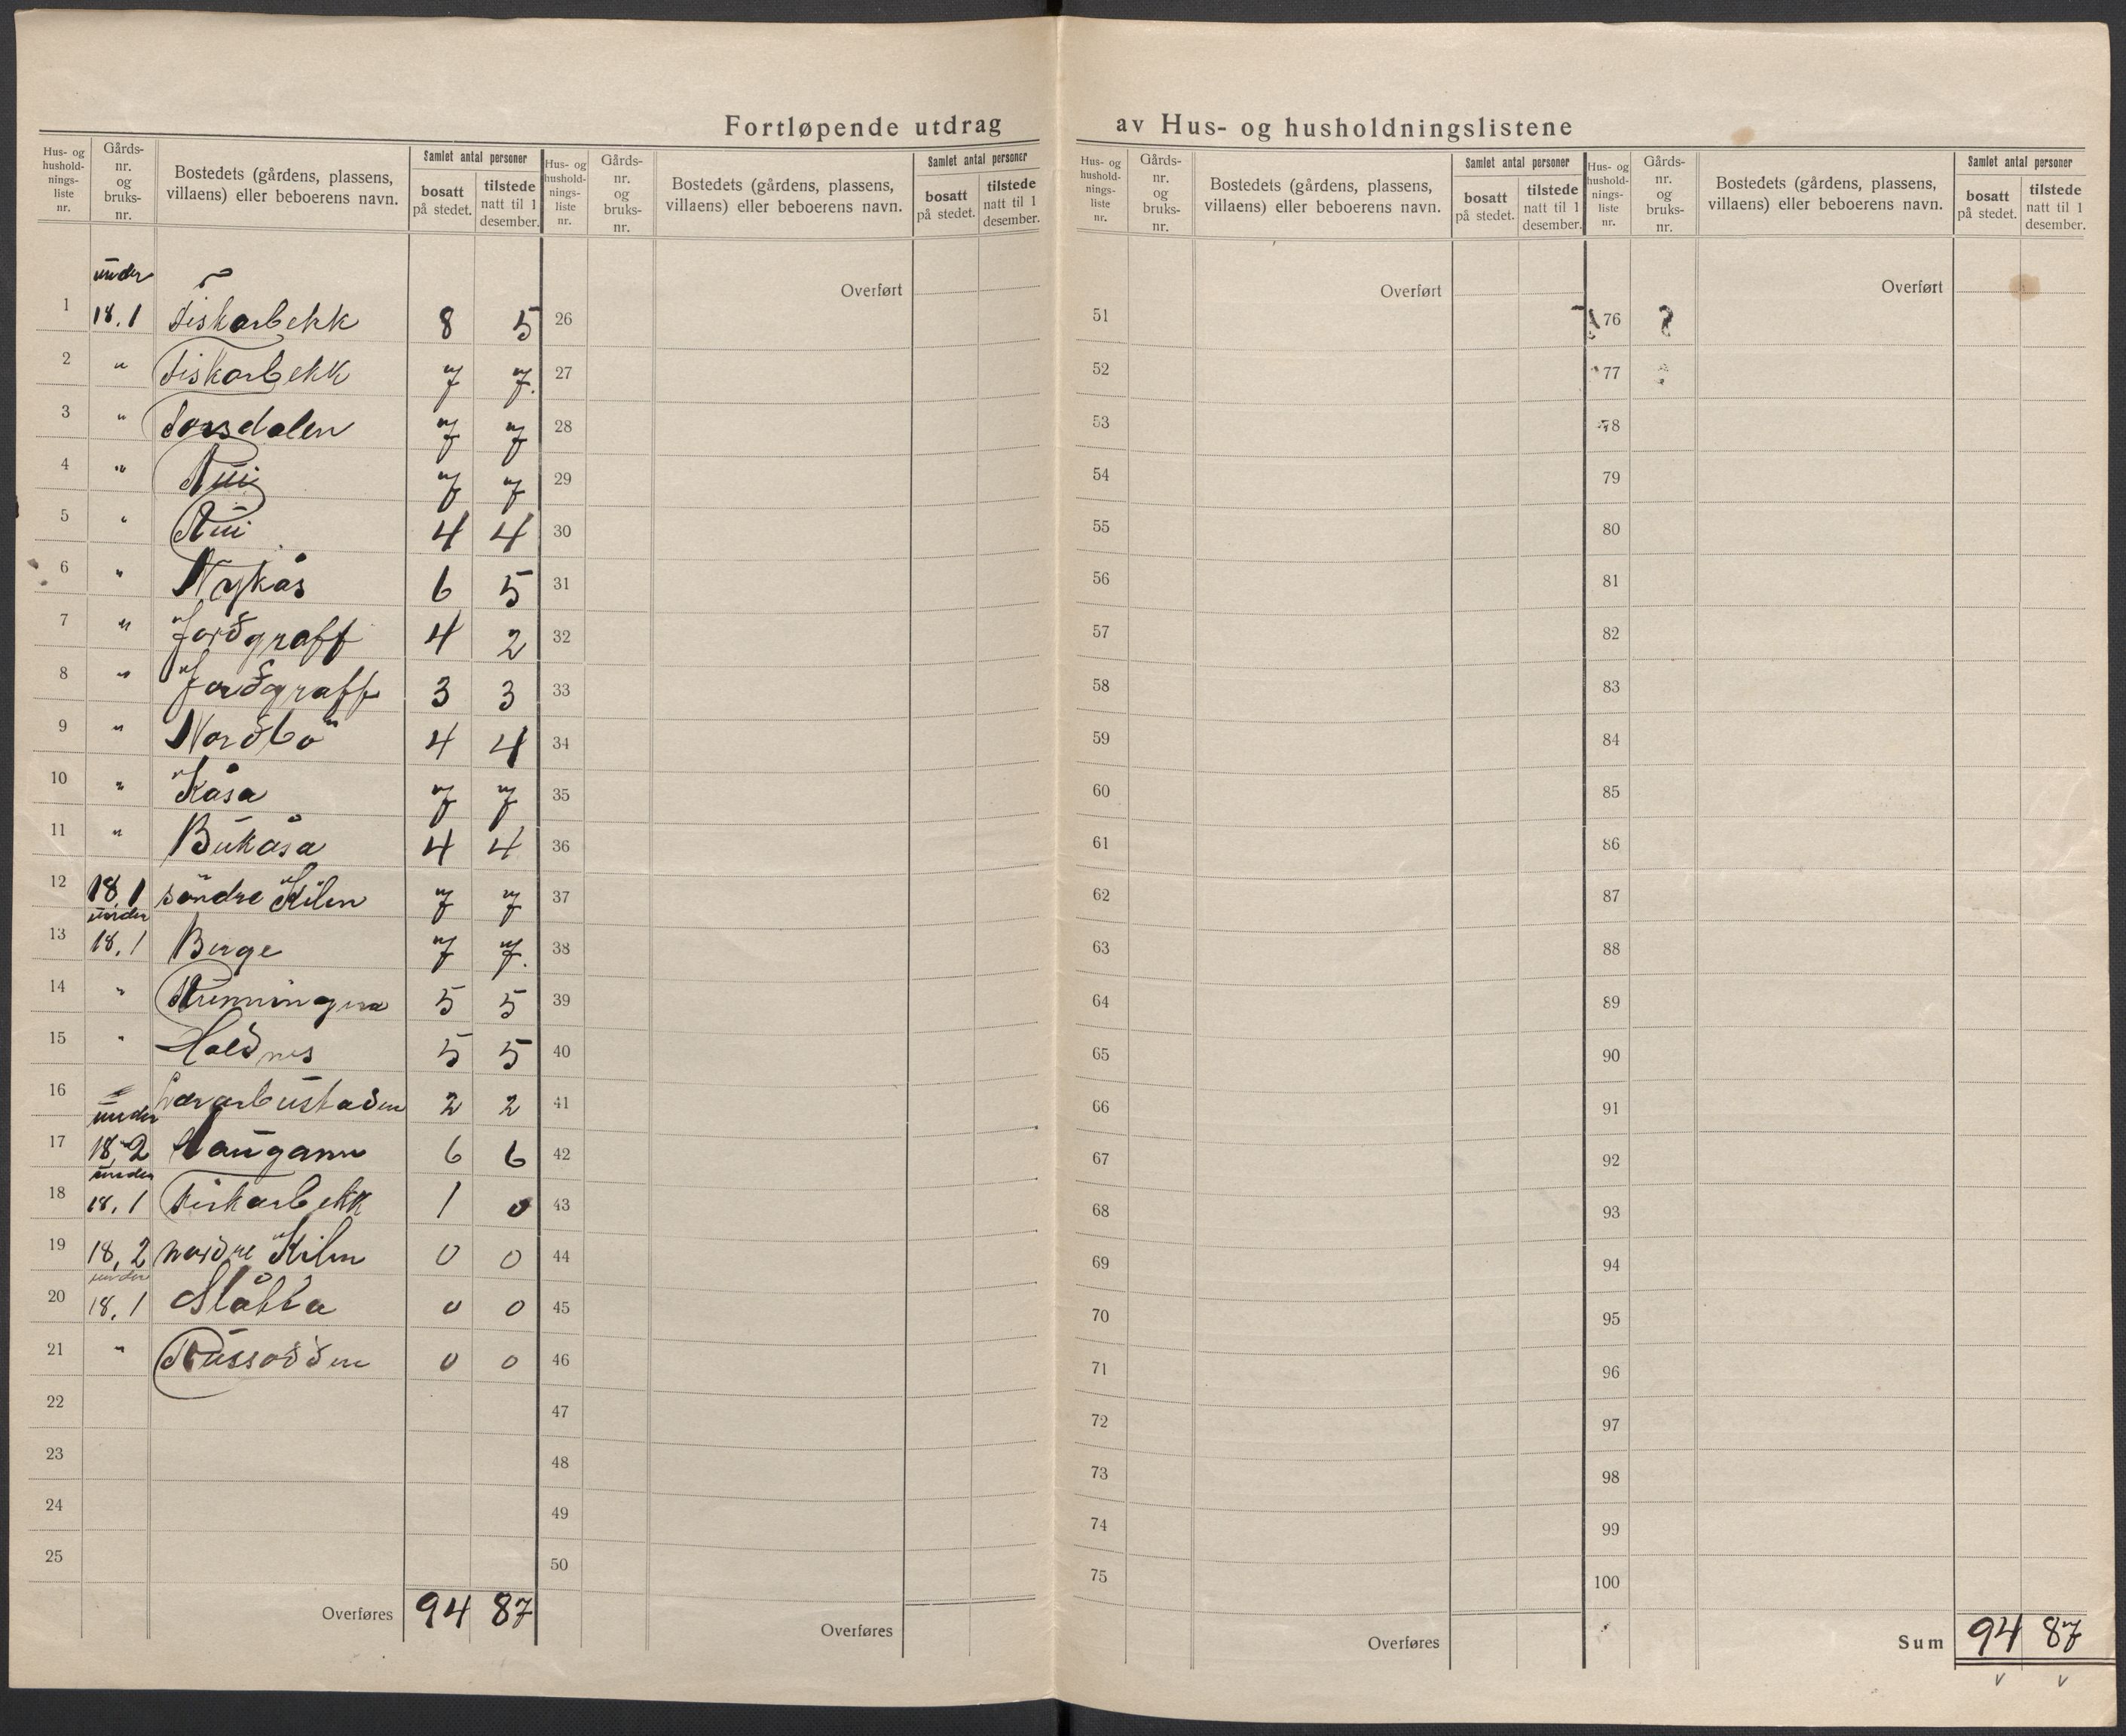 Fortløpende utdrag av Hus- og husholdningslistene
Hus- og hushold-nings-liste nr. Gårds-nr. og bruks-nr. Bostedets (gårdens, plassens, villaens) eller beboerens navn. Samlet antal personer bosatt på stedet. tilstede natt til 1 desember.
Hus- og hushold-nings-liste nr. Gårds-nr. og bruks-nr. Bostedets (gårdens, plassens, villaens) eller beboerens navn. Samlet antal personer bosatt på stedet. tilstede natt til 1 desember.
Hus- og hushold-nings-liste nr. Gårds-nr. og bruks-nr. Bostedets (gårdens, plassens, villaens) eller beboerens navn. Samlet antal personer bosatt på stedet. tilstede natt til 1 desember.
Hus- og hushold-nings-liste nr. Gårds-nr. og bruks-nr. Bostedets (gårdens, plassens, villaens) eller beboerens navn. Samlet antal personer bosatt på stedet. tilstede natt til 1 desember.
under
1 18.1 Fiskarbekk 8 5
2 " Fiskarbekk 7 7.
3 " 7 7
4 " Rui 7 7
5 " Rui 4 4
6 " Nykås 6 5
7 " Jordgraff 4 2
8 " Jordgraff 3 3
9 " Nordbö 4 4
10 " Kåsa 7 7
11 " Bukåsa 4 4
12 18.1 söndre Kilen 7 7
under
13 18.1 Berge 7 7.
14 " Runningen 5 5
15 " Holdnes 5 5
16 " Lærarbustaden 2 2
under
17 18.2 Haugann 6 6
under
18 18.1 Fiskarbekk 1 0
19 18.2 nordre Kilen 0 0
under
20 18.1 Slåkka 0 0
21 " Russodden 0 0
22
23
24
25
Overføres 94 87
Overført
26
27
28
29
30
31
32
33
34
35
36
37
38
39
40
41
42
43
44
45
46
47
48
49
50
Overføres
Overført
51
52
53
54
55
56
57
58
59
60
61
62
63
64
65
66
67
68
69
70
71
72
73
74
75
Overføres
Overført
76
77
78
79
80
81
82
83
84
85
86
87
88
89
90
91
92
93
94
95
96
97
98
99
100
Sum 94 87
v v